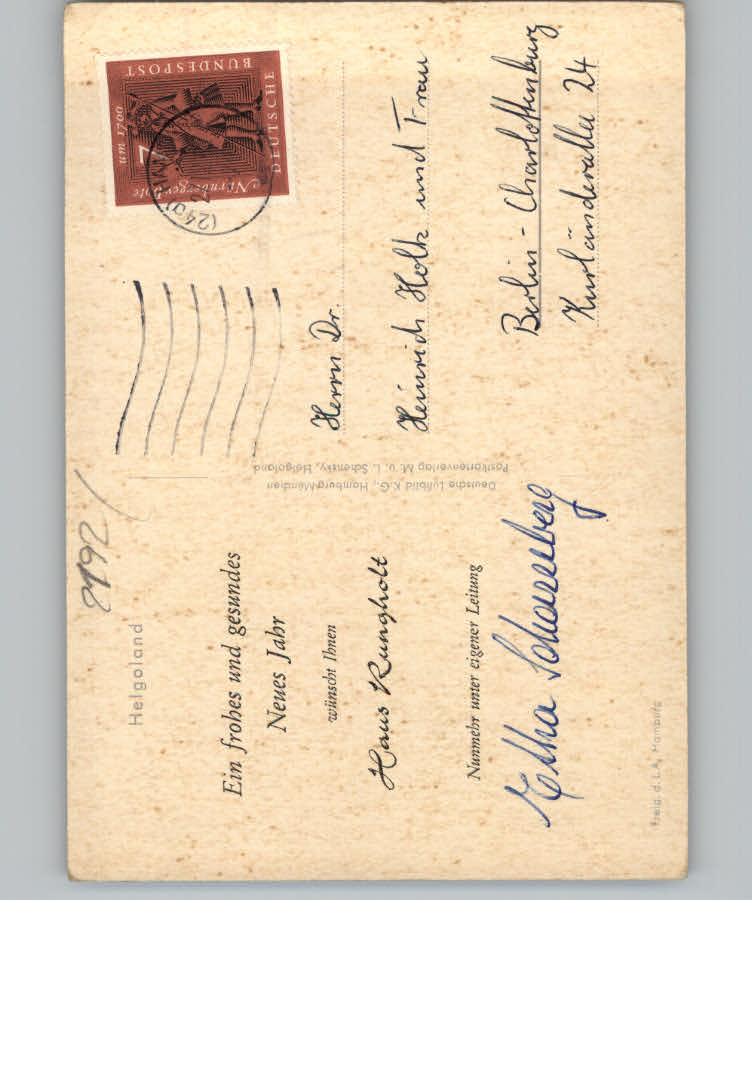 Helgoland
8192
Ein frohes und gesundes
Neues Jahr
wünscht Ihnen
Haus Rungholt
Nunmehr unter eigener Leitung
Etha Scharenberg
Freig. d. LA. Hamburg
Deutsche Luftbild K.G., Hamburg-München
Postkartenverlag M. u. L. Schensky, Helgoland
DEUTSCHE
BUNDESPOST
um 1700
7
Nürnberger Bote
(24a)
Herrn Dr.
Heinrich Holtz und Frau
Berlin-Charlottenburg
Kurländerallee 24